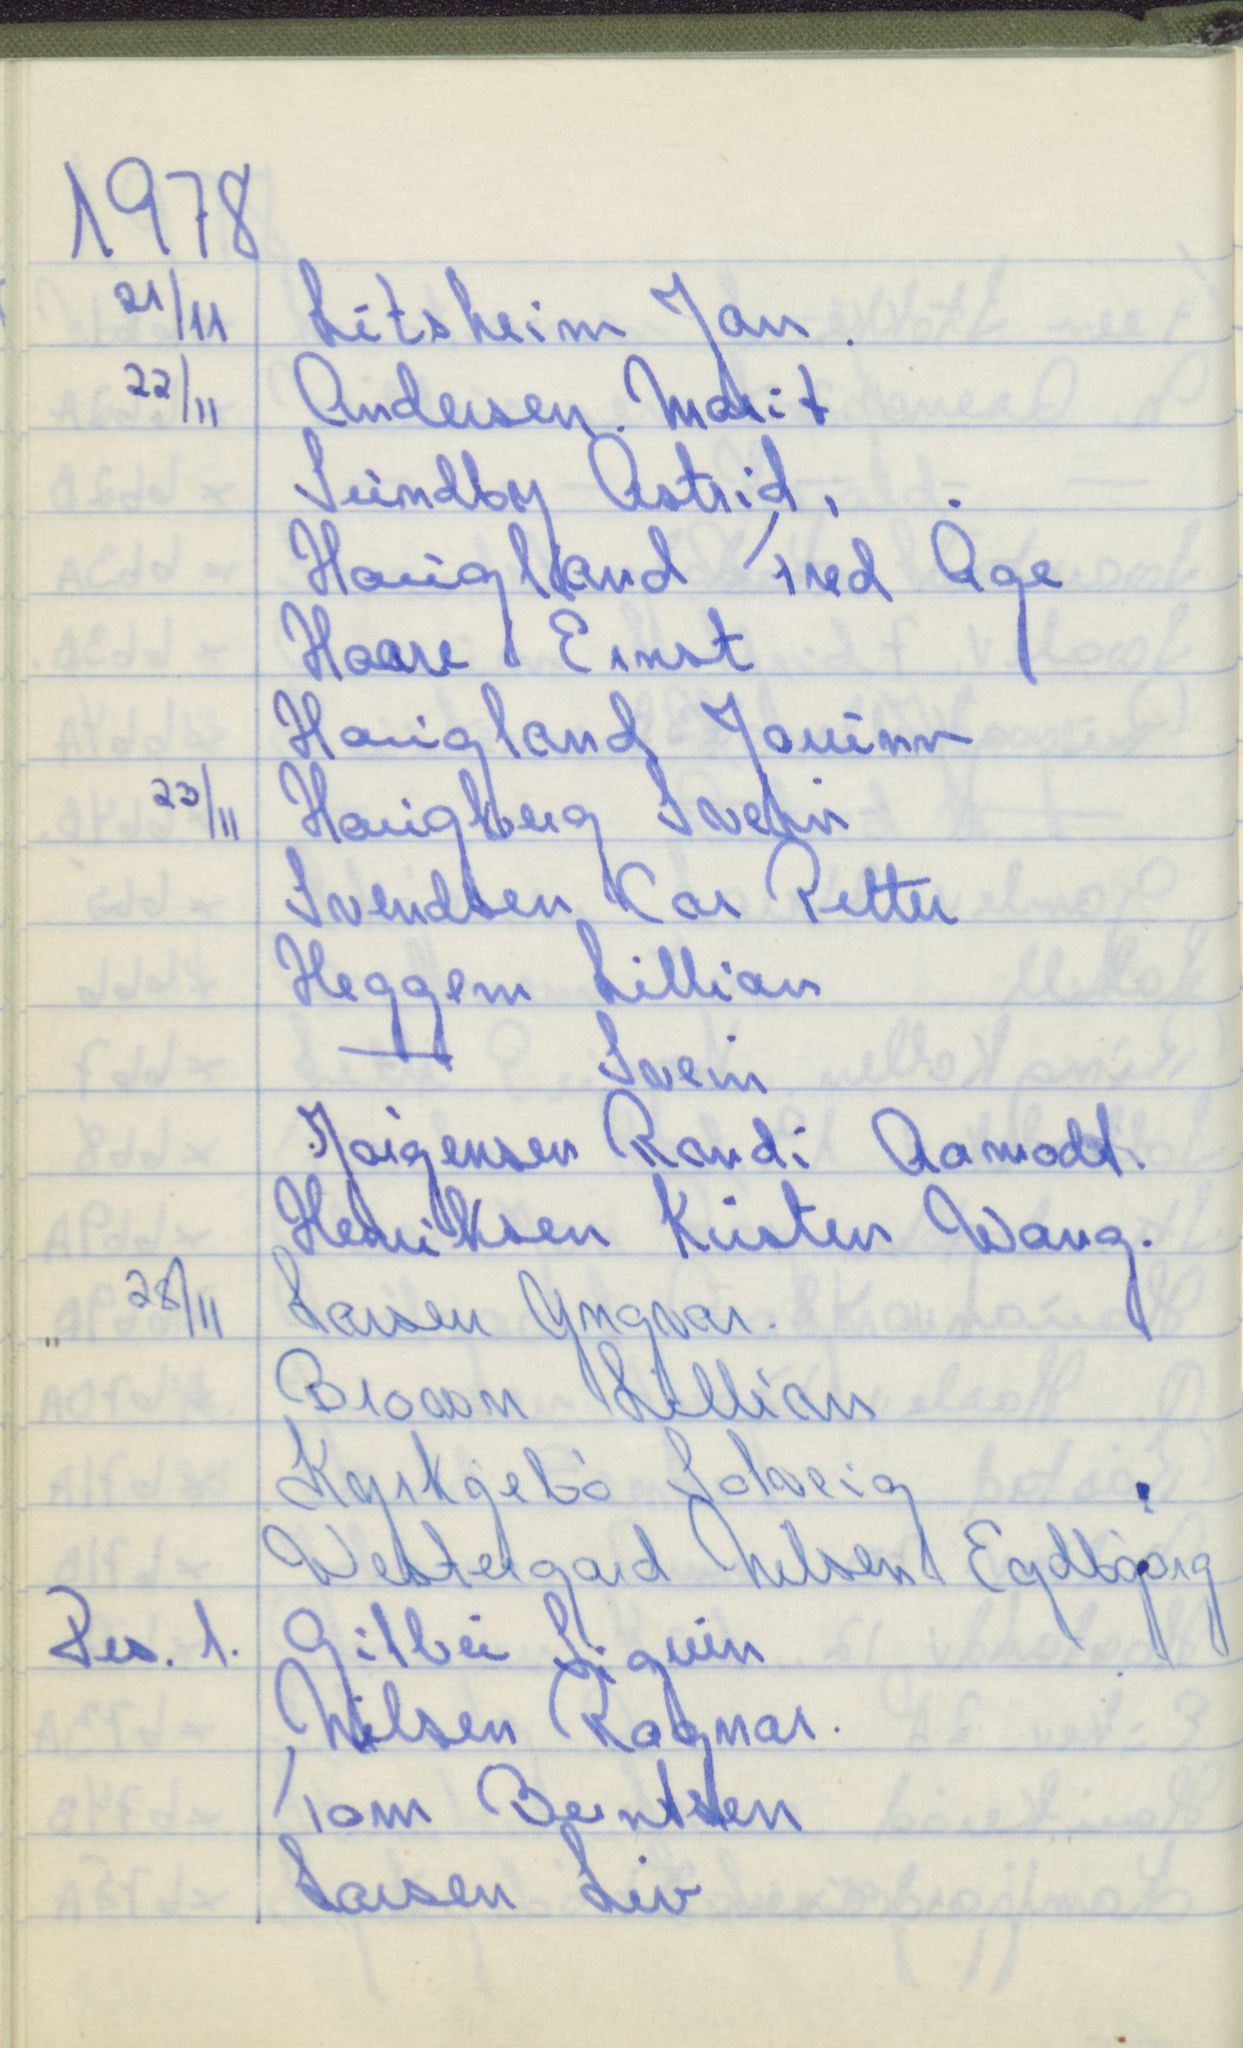 1978
21/11 Litsheim Jan.
22/11 Andersen Marit
Sundby Astrid.
Haugland Fred Age
Haare Ernst
Haugland Jouinn
23/11 Haugberg Svein
Svendsen Car Petter
Heggem Lillian
— Svein
Jørgensen Randi Aamodt.
Henriksen Kirsten Wang.
28/11 Larsen Yngvar.
Browon Lillian
Kyrkjebø Solveig
Westergard Nilsen Eydbjørg
Des. 1. Gilbei Sigrun
Nilsen Ragnar.
Tom Berntsen
Larsen Liv